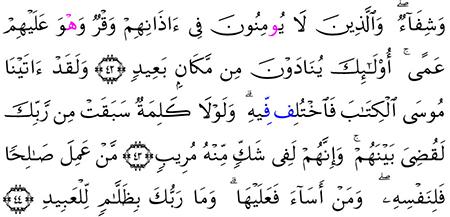 وَشِفَآءٌ ۖ وَٱلَّذِينَ لَا يُومِنُونَ فِى ءَاذَانِهِمْ وَقْرٌ وَهْوَ عَلَيْهِمْ
عَمًى ۚ أُوْلَـٰٓئِكَ يُنَادَوْنَ مِن مَّكَانٍۭ بَعِيدٍ ﴿٤٢﴾ وَلَقَدْ ءَاتَيْنَا
مُوسَى ٱلْكِتَـٰبَ فَٱخْتُلِف فِّيهِ ۗ وَلَوْلَا كَلِمَةٌ سَبَقَتْ مِن رَّبِّكَ
لَقُضِىَ بَيْنَهُمْ ۚ وَإِنَّهُمْ لَفِى شَكٍّ مِّنْهُ مُرِيبٍ ﴿٤٣﴾ مَّنْ عَمِلَ صَـٰلِحًا
فَلِنَفْسِهِۦ ۖ وَمَنْ أَسَآءَ فَعَلَيْهَا ۗ وَمَا رَبُّكَ بِظَلَّـٰمٍ لِّلْعَبِيدِ ﴿٤٤﴾